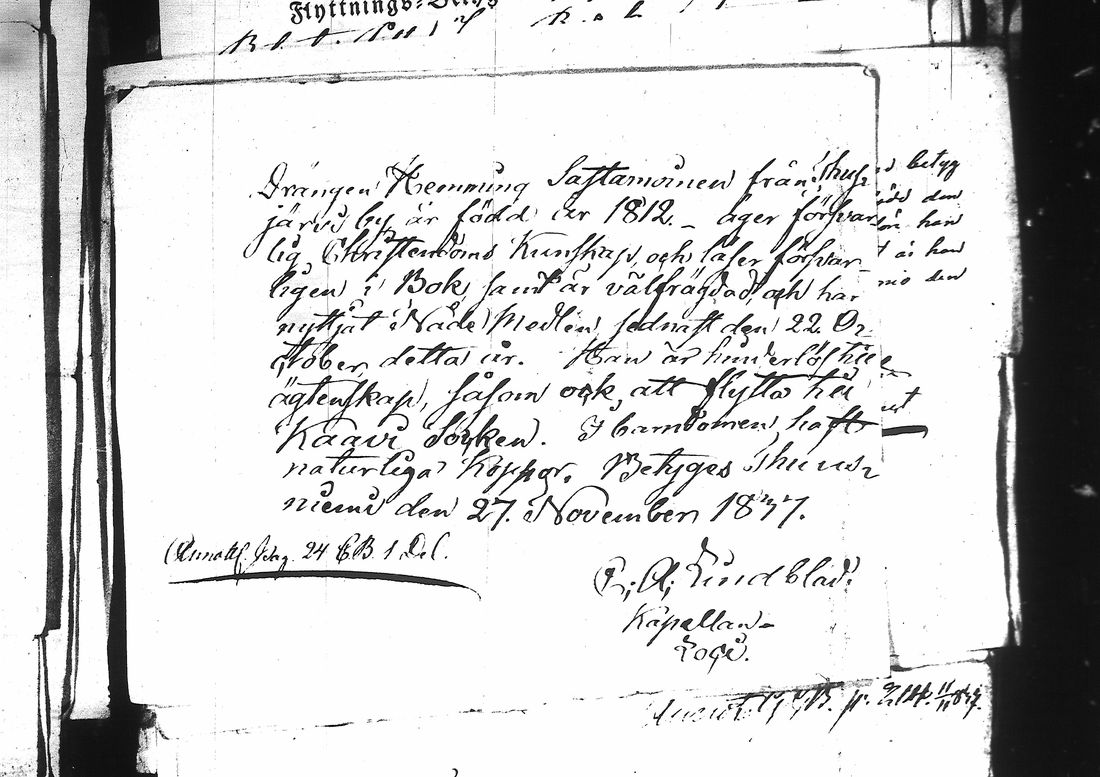 Flyttnings-Betyg
Drängen Hemming Sastamoinen från
järvi by är född år 1812. _ äger försvar
lig Christendoms Kunskap, och läser försvar
ligen i Bok, samt är välfrägdad, och har
nyttjat Nåde Medlen sednast den 22. Oc
tober detta år. Han är hinderlös till
ägtenskap, såsom ock, att flytta till
Kaavi Socken. I barndomen haft
naturliga koppor. Betyges Thuus-
niemi den 27. November 1837.
24 CB. 1 Del.
C. A. Lindblad.
Kapellan
Loci.
betyg
den
han
han
den